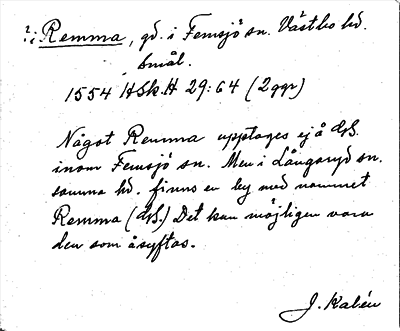 ?i Remma, gd. i Femsjö sn. Västbo hd.
Smål.
1554 HSk.H 29:64 (2 ggr)
Något Remma upptages ej å GB.
inom Femsjö sn. Men i Långaryd sn.
samma hd. finns en by med namnet
Remma (GB.) Det kan möjligen vara
den som åsyftas.
J. Kalén